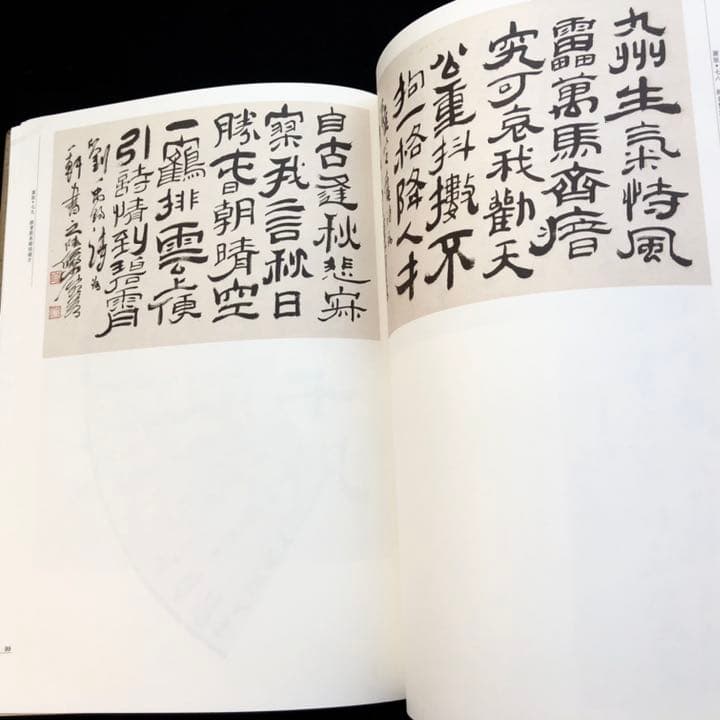 九州生氣恃風
靁萬馬齊瘖
究可哀我勸天
公重抖擻不
拘一格降人才
自古逢秋悲寂
寥我言秋日
勝春朝晴空
一鶴排雲上便
引詩情到碧霄
劉禹錫詩
99